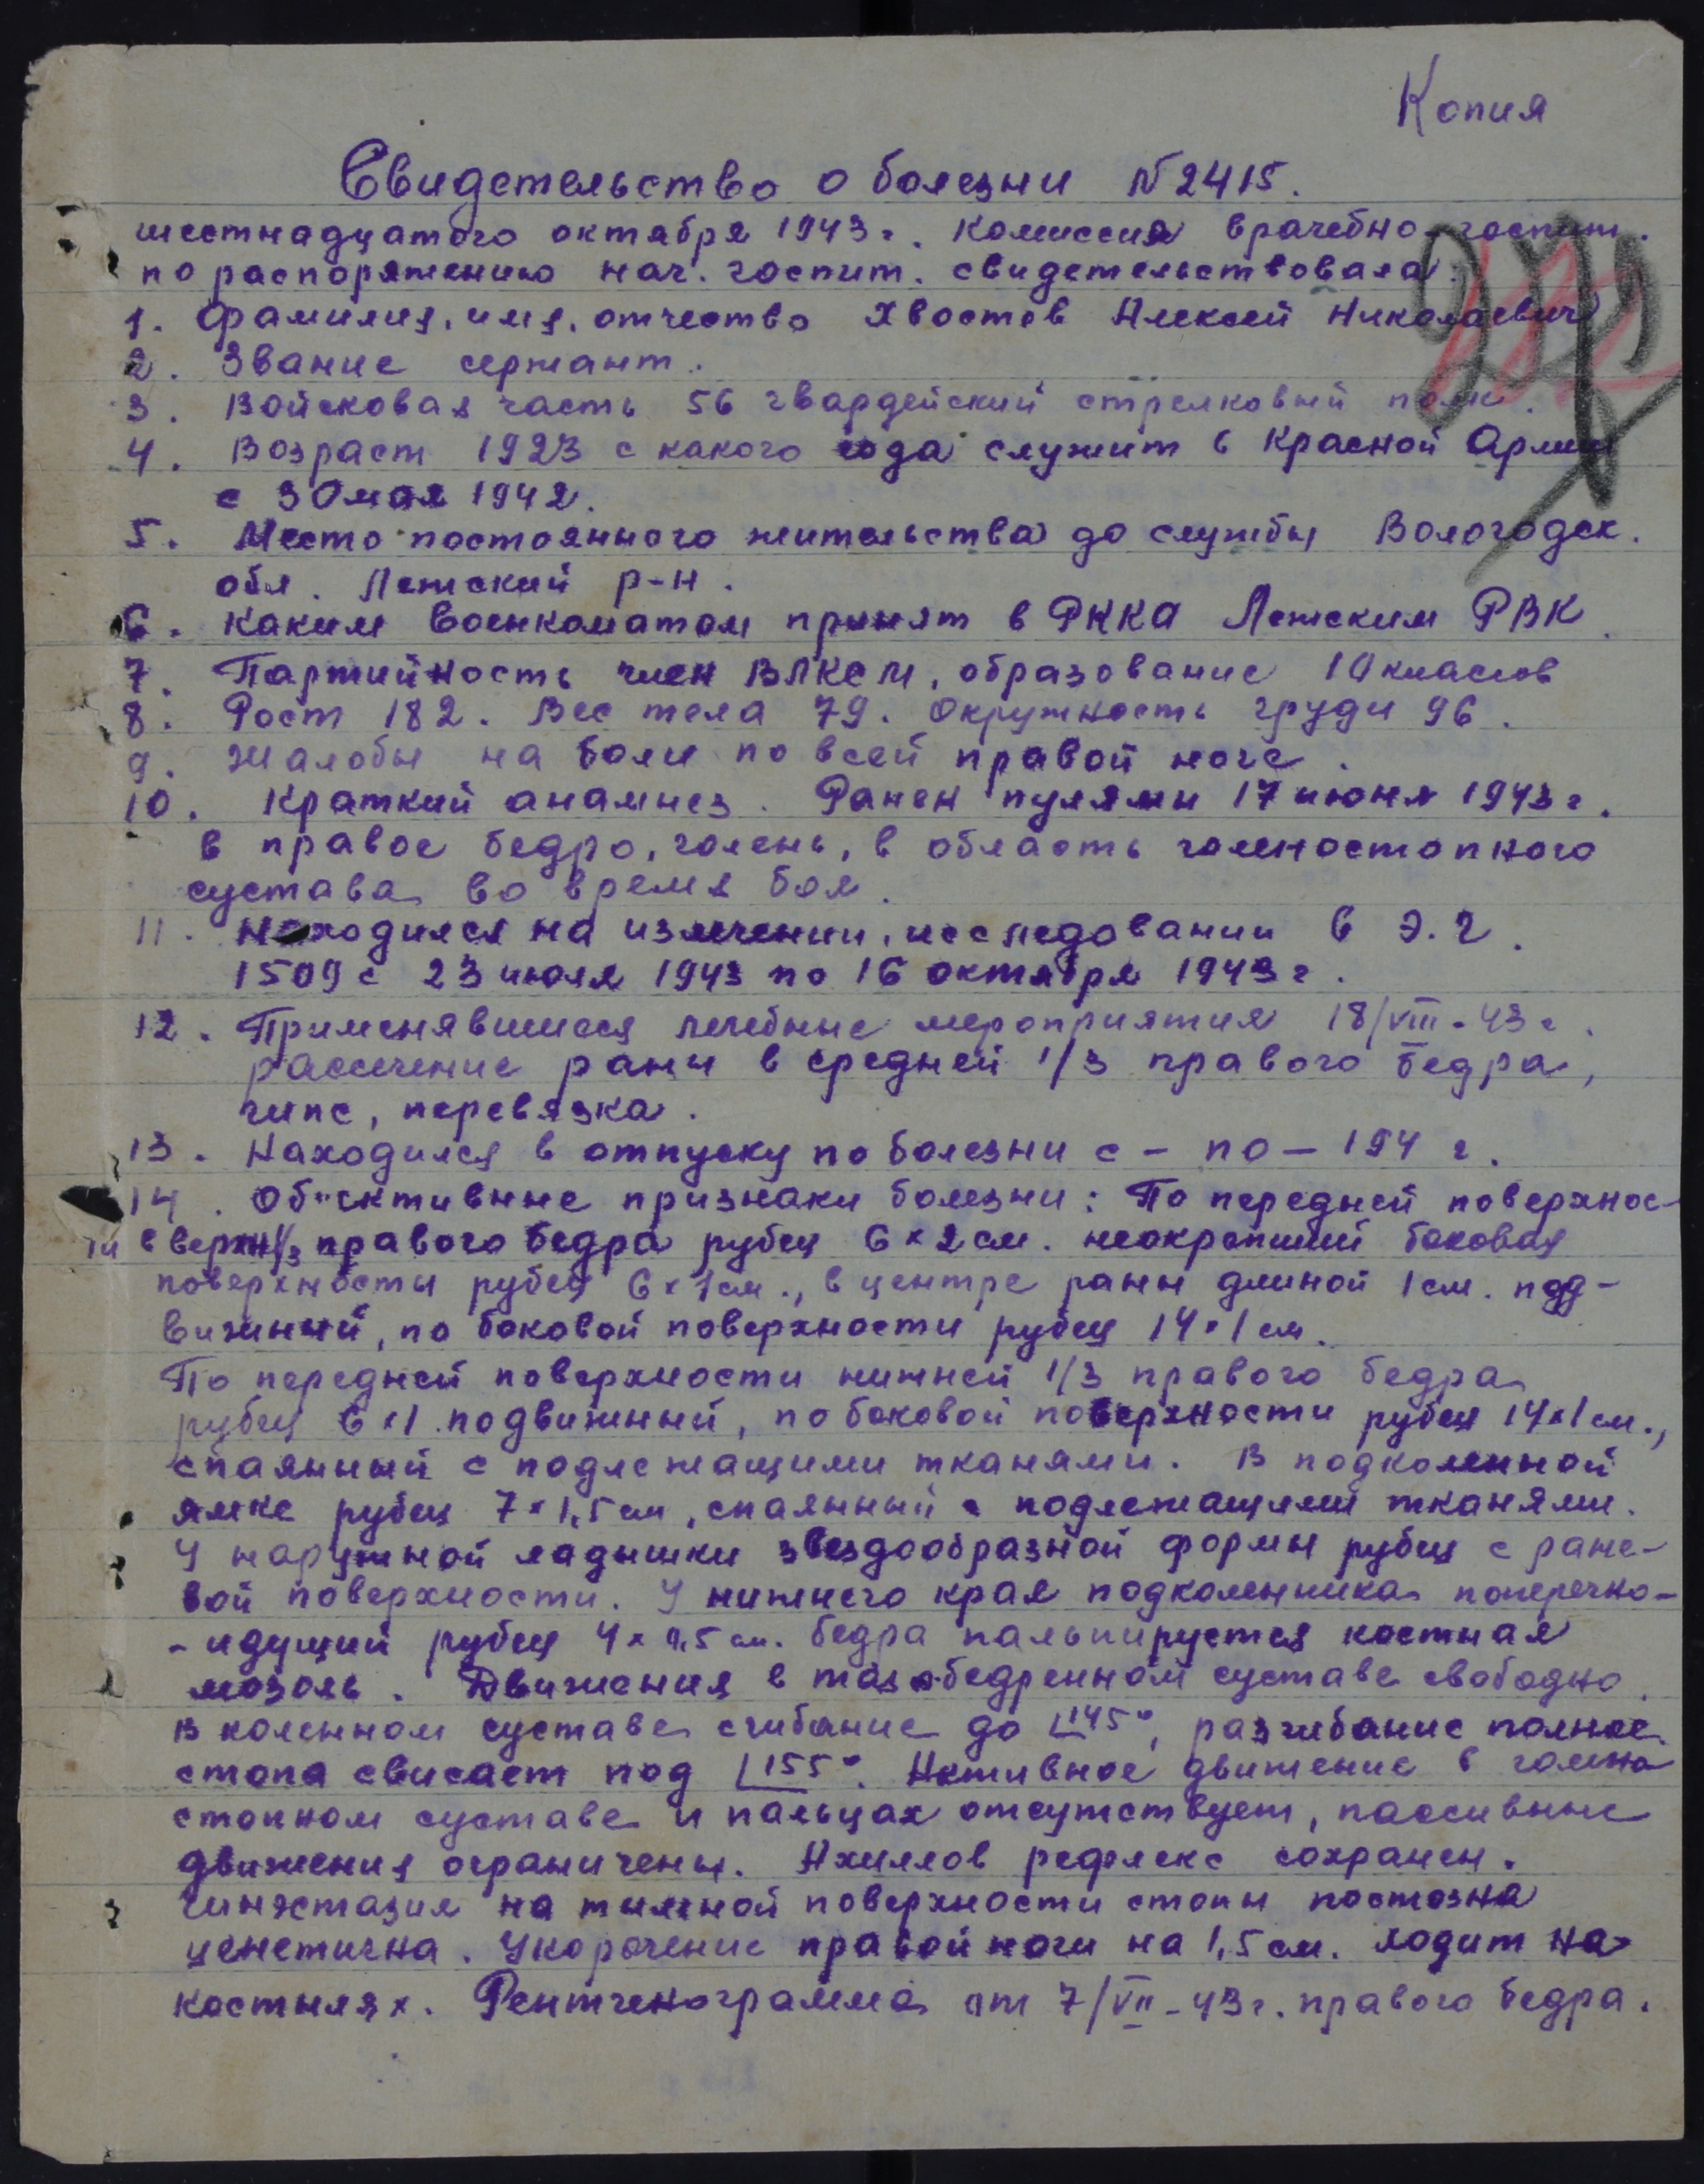 Копия
Свидетельство о болезни №2415.
шестнадцатого октября 1943 г. Комиссия врачебно-госпит.
по распоряжению нач. госпит. свидетельствовала:
1. Фамилия, имя, отчество Хвостов Алексей Николаевич
2. Звание сержант.
3. Войсковая часть 56 гвардейский стрелковый полк.
4. Возраст 1923 с какого года служит в Красной Армии
с 30 мая 1942.
5. Место постоянного жительства до службы Вологодск.
обл. Лежский р-н.
6. Каким военкоматом принят в РККА Лежским РВК.
7. Партийность член ВЛКСМ, образование 10 классов
8. Рост 182. Вес тела 79. Окружность груди 96.
9. Жалобы на боли по всей правой ноге.
10. Краткий анамнез. Ранен пулями 17 июня 1943 г.
в правое бедро, голень, в область голеностопного
сустава во время боя.
11. Находился на излечении, исследовании в Э.Г.
1509 с 23 июля 1943 по 16 октября 1943 г.
12. Применявшиеся лечебные мероприятия 18/VIII-43 г.
рассечение раны в средней 1/3 правого бедра,
гипс, перевязка.
13. Находился в отпуску по болезни с – по – 194 г.
14. Об"ективные признаки болезни: По передней поверхнос-
ти в верхн 1/3 правого бедра рубец 6×2 см. неокрепший боковая
поверхносты рубец 6×1 см., в центре раны длиной 1 см. под-
вижный, по боковой поверхности рубец 14×1 см.
По передней поверхности нижней 1/3 правого бедра
рубец 6×1 подвижный, по боковой поверхности рубец 14×1 см.,
спаянный с подлежащими тканями. В подколенной
ямке рубец 7×1,5 см, спаянный с подлежащими тканями.
У наружной ладышки звездообразной формы рубец с ране-
вой поверхности. У нижнего края подколенника поперечно-
-идущий рубец 4×0,5 см. бедра пальпируется костная
мозоль. Движения в тазобедренном суставе свободно.
В коленном суставе сгибание до ∟145°, разгибание полное
стопа свисает под ∟155°. Активное движение в голено
стопном суставе и пальцах отсутствует, пассивные
движения ограничены. Ахиллов рефлекс сохранен.
на тыльной поверхности стопы
Укорочение правой ноги на 1,5 см. ходит на
костылях. Рентгенограмма от 7/VII-43 г. правого бедра.